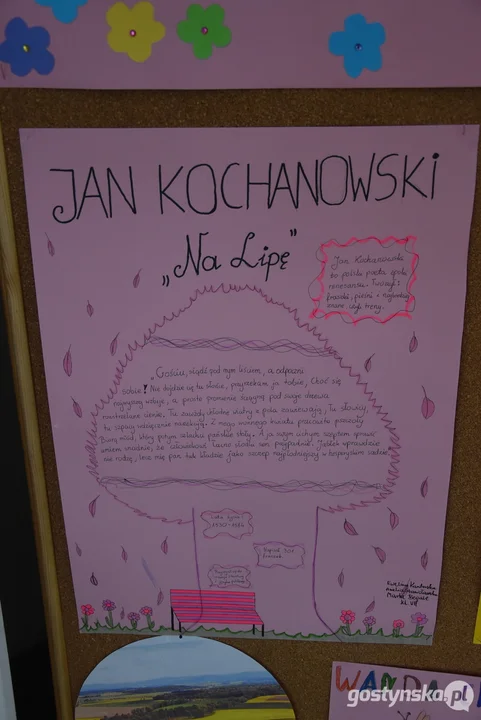 JAN KOCHANOWSKI
„Na Lipę”
Jan Kochanowski
to polski poeta epoki
renesansu. Tworzył:
fraszki, pieśni i najbardziej
znane były treny.
„Gościu, siądź pod mym liściem, a odpoczni
sobie! Nie dojdzie cię tu słońce, przyrzekam ja tobie, Choć się
najwyższej wzbije, a proste promienie ściągną pod swoje drzewa
rozstrzelane cienie. Tu zawżdy chłodne wiatry z pola zawiewają, Tu słowicy,
tu szpacy wdzięcznie narzekają. Z mego wonnego kwiatu pracowite pszczoły
Biorą miód, który potym szlachci pańskie stoły. A ja swym cichym szeptem sprawić
umiem snadnie, że człowiekowi łacno słodki sen przypadnie. Jabłek wprawdzie
nie rodzę, lecz mię pan tak kładzie jako szczep najpłodniejszy w hesperyskim sadzie.
1530-1584
Napisał 303
Ewelina
Kl. VII
WANDA
gostynska.pl